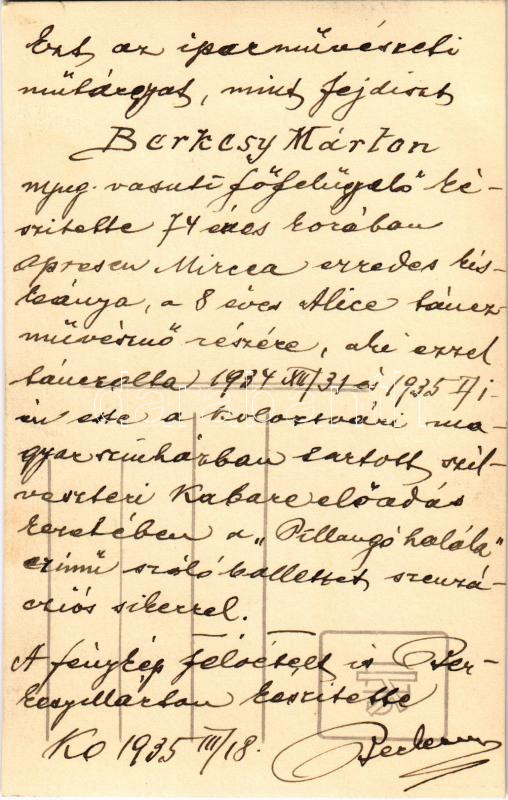 Ezt az iparművészeti
műtárgyat, mint fejdíszt
Berkesy Márton
nyug. vasuti főfelügyelő ké-
szitette 74 éves korában
Oprescu Mircea ezredes kis-
leánya, a 8 éves Alice táncz-
művésznő részére, aki ezzel
tánczolta 1934 XII/31 és 1935 I/i-
én este a Kolozsvári ma-
gyar szinházban tartott szil-
veszteri Kabaré előadás
keretében a „Pillangó halála"
czimű szóló ballettet szenzá-
cziós sikerrel.
A fénykép felvételt is Ber-
kesy Márton készitette
Ko 1935 III/18.